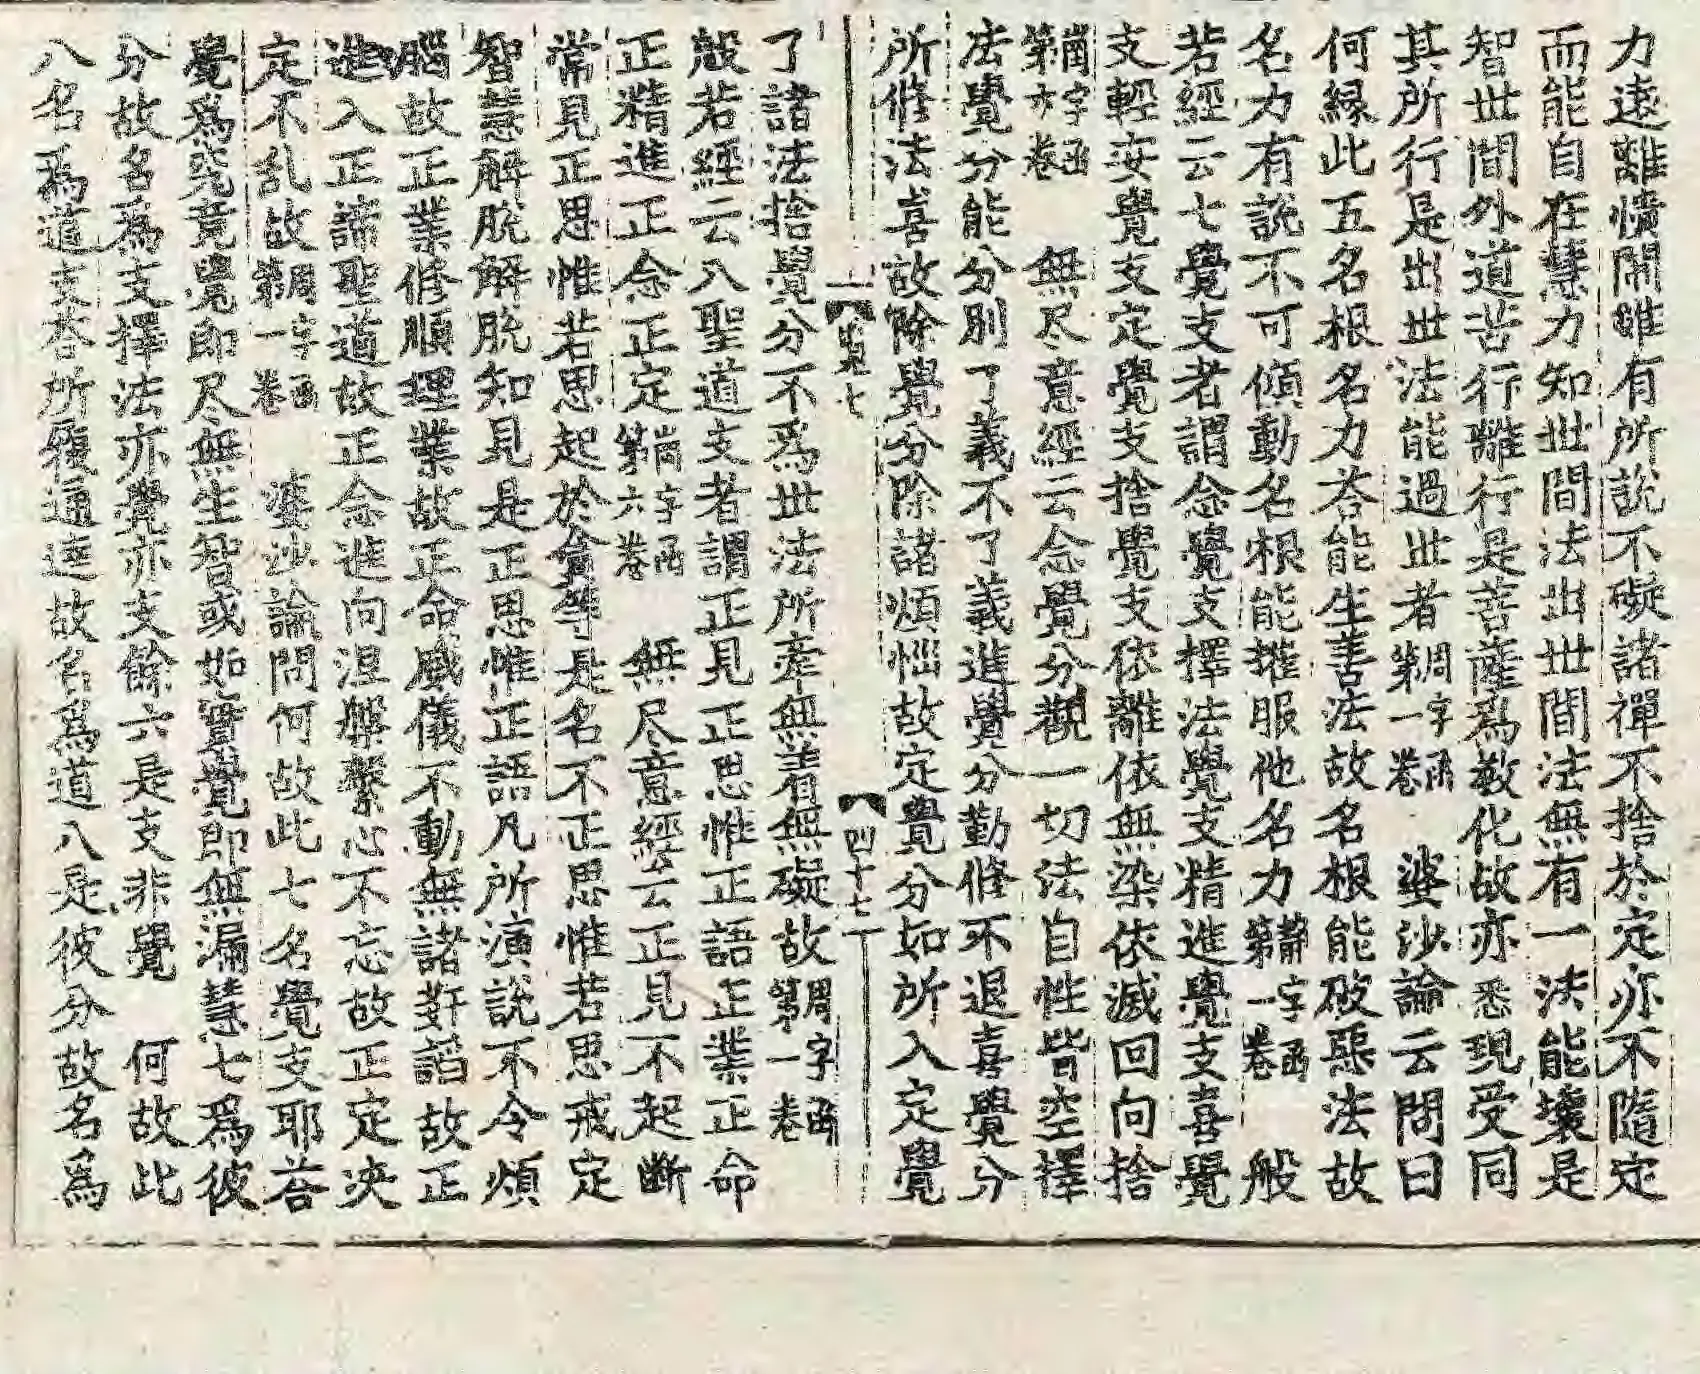 力遠離憒閙雖有所說不礙諸禪不捨於定亦不隨定
而能自在慧力知世間法出世間法無有一法能壞是
智世間外道苦行難行是菩薩爲敎化故亦悉現受同
其所行是出世法能過世者第一卷 婆沙論云問曰
何緣此五名根名力荅能生善法故名根能破惡法故
名力有說不可傾動名根能摧服他名力第一卷 般
若經云七覺支者謂念覺支擇法覺支精進覺支喜覺
支輕安覺支定覺支捨覺支依離依無染依滅回向捨
第六卷 無尽意經云念覺分觀一切法自性皆空擇
法覺分能分別了義不了義進覺分勤修不退喜覺分
所修法喜故除覺分除諸煩惱故定覺分如所入定覺
七 四十七
了諸法捨覺分不爲世法所牽無着無礙故第周字函一卷
般若經云八聖道支者謂正見正思惟正語正業正命
正精進正念正定第六卷 無尽意經云正見不起斷
常見正思惟若思起於貪等是名不正思惟若思戒定
智慧解脫解脫知見是正思惟正語凡所演說不令煩
腦故正業修順理業故正命威儀不動無諸姧謟故正
進入正諦聖道故正念進向涅槃繫心不忘故正定決
定不乱故第一卷 婆沙論問何故此七名覺支耶荅
覺爲究竟覺即尽無生智或如實覺即無漏慧七爲彼
分故名爲支擇法亦覺亦支餘六是支非覺 何故此
八名爲道支荅所履通達故名爲道八是彼分故名爲